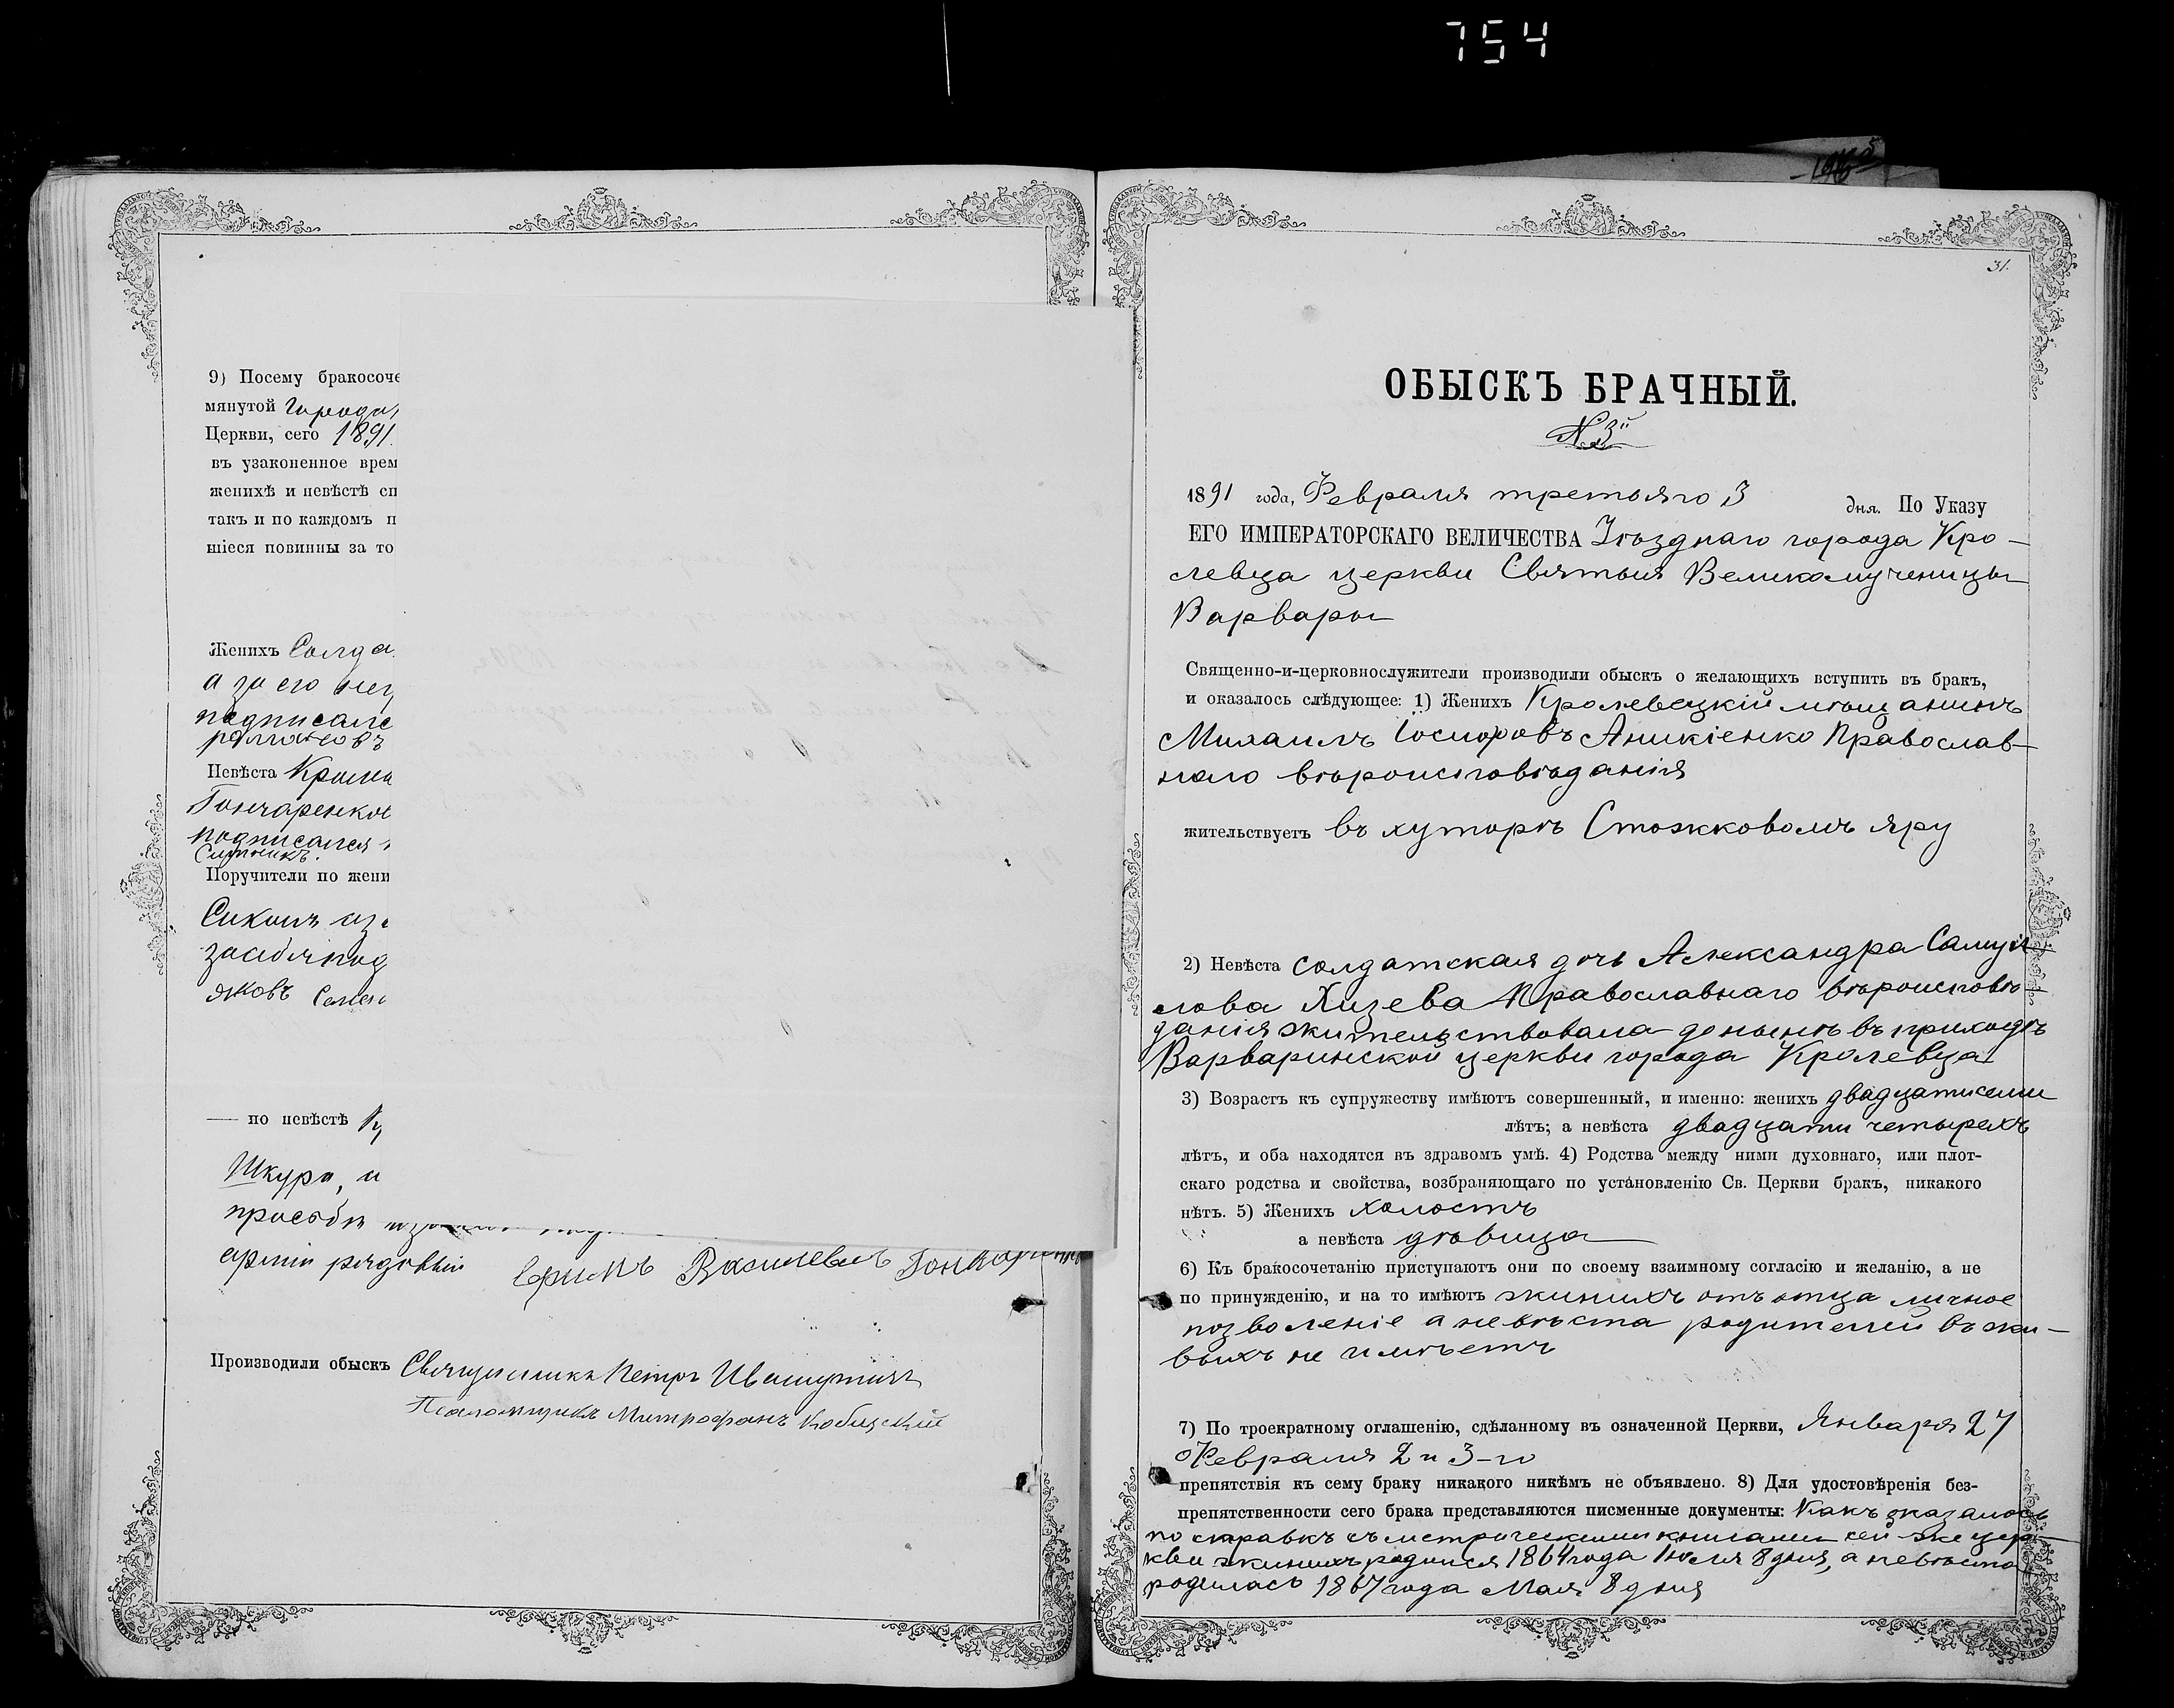 754
9) Посему бракосоче
мянутой Города
Церкви, сего 1891
въ узаконенное врем
женихѣ и невѣстѣ сп
такъ и по каждомъ п
шіеся повинны за то
Женихъ Солда
а за его нег
подписалс
Невѣста Крол
Гончаренков
подписался
Ситникъ.
Поручители по жени
за себя под
яковъ Семен
— по невѣстѣ К
Шкура, и
арміи рядовый Ефимъ Васильевъ Гончаренко
Производили обыскъ Священникъ Петръ Ивашутичъ
Псаломщикъ Митрофанъ Кобищскій
31.
ОБЫСКЪ БРАЧНЫЙ.
№ 3й
1891 года, Февраля третьяго 3 дня. По Указу
ЕГО ИМПЕРАТОРСКАГО ВЕЛИЧЕСТВА Уѣзднаго города Кро-
левца церкви Святыя Великомученицы
Варвары
Священно-и-церковнослужители производили обыскъ о желающихъ вступить въ бракъ,
и оказалось слѣдующее: 1) Женихъ Кролевецкій мѣщанинъ
Михаилъ Аникіенко Православ-
наго вѣроисповѣданія
жительствуетъ въ хуторѣ Стожковомъ яру
2) Невѣста солдатская дочь Александра Самуй-
лова Хизева Православнаго вѣроисповѣ-
данія жительствовала донынѣ въ приходѣ
Варваринской церкви города Кролевца
3) Возрастъ къ супружеству имѣютъ совершенный, и именно: женихъ двадцатисеми
лѣтъ; а невѣста двадцати четырехъ
лѣтъ, и оба находятся въ здравомъ умѣ. 4) Родства между ними духовнаго, или плот-
скаго родства и свойства, возбраняющаго по установленію Св. Церкви бракъ, никакого
нѣтъ. 5) Женихъ холостъ
а невѣста дѣвица
6) Къ бракосочетанію приступаютъ они по своему взаимному согласію и желанію, а не
по принужденію, и на то имѣютъ женихъ отъ отца личное
позволеніе а невѣста родителей въ жи-
выхъ не имѣетъ
7) По троекратному оглашенію, сдѣланному въ означенной Церкви, Января 27
Февраля 2 и 3-го
препятствія къ сему браку никакого никѣмъ не объявлено. 8) Для удостовѣренія без-
препятственности сего брака представляются писменные документы: Какъ оказалось
по справкѣ съ метрическими книгами сей же цер-
кви женихъ родился 1864 года Іюля 8 дня, а невѣста
родилась 1867 года Мая 8 дня